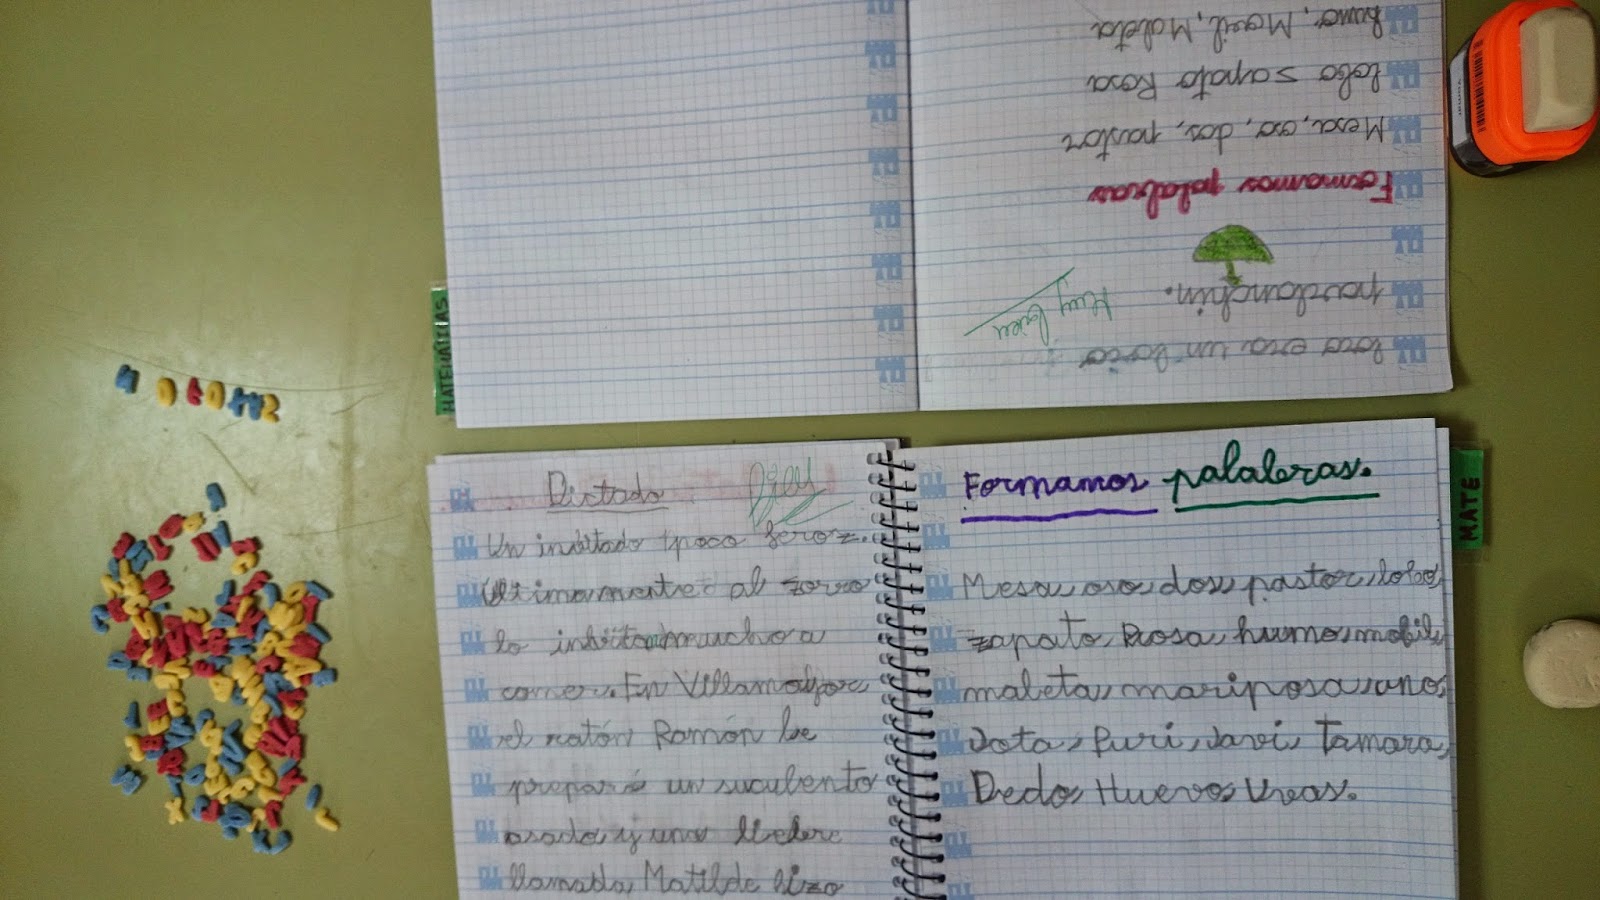 humo, Movil, Maleta
Lobo zapato Rosa
Mesa, oso, dos, pastor
Formamos palabras
pardanchin.
Muy bien
loco era un
MATEMÁTICAS
Dictado
Un invitado poco feroz.
Ultimamente al zorro
lo invitan mucho a
comer. En Villamayor,
el ratón Ramón le
preparó un suculento
asado y una
llamada Matilde hizo
Formamos palabras.
Mesa, oso, dos, pastor, lobo,
zapato, Rosa, humo, mobil,
maleta, mariposa, uno,
Jota, Puri, Javi, Tamara,
Dedo, Huevos Uvas.
MATE